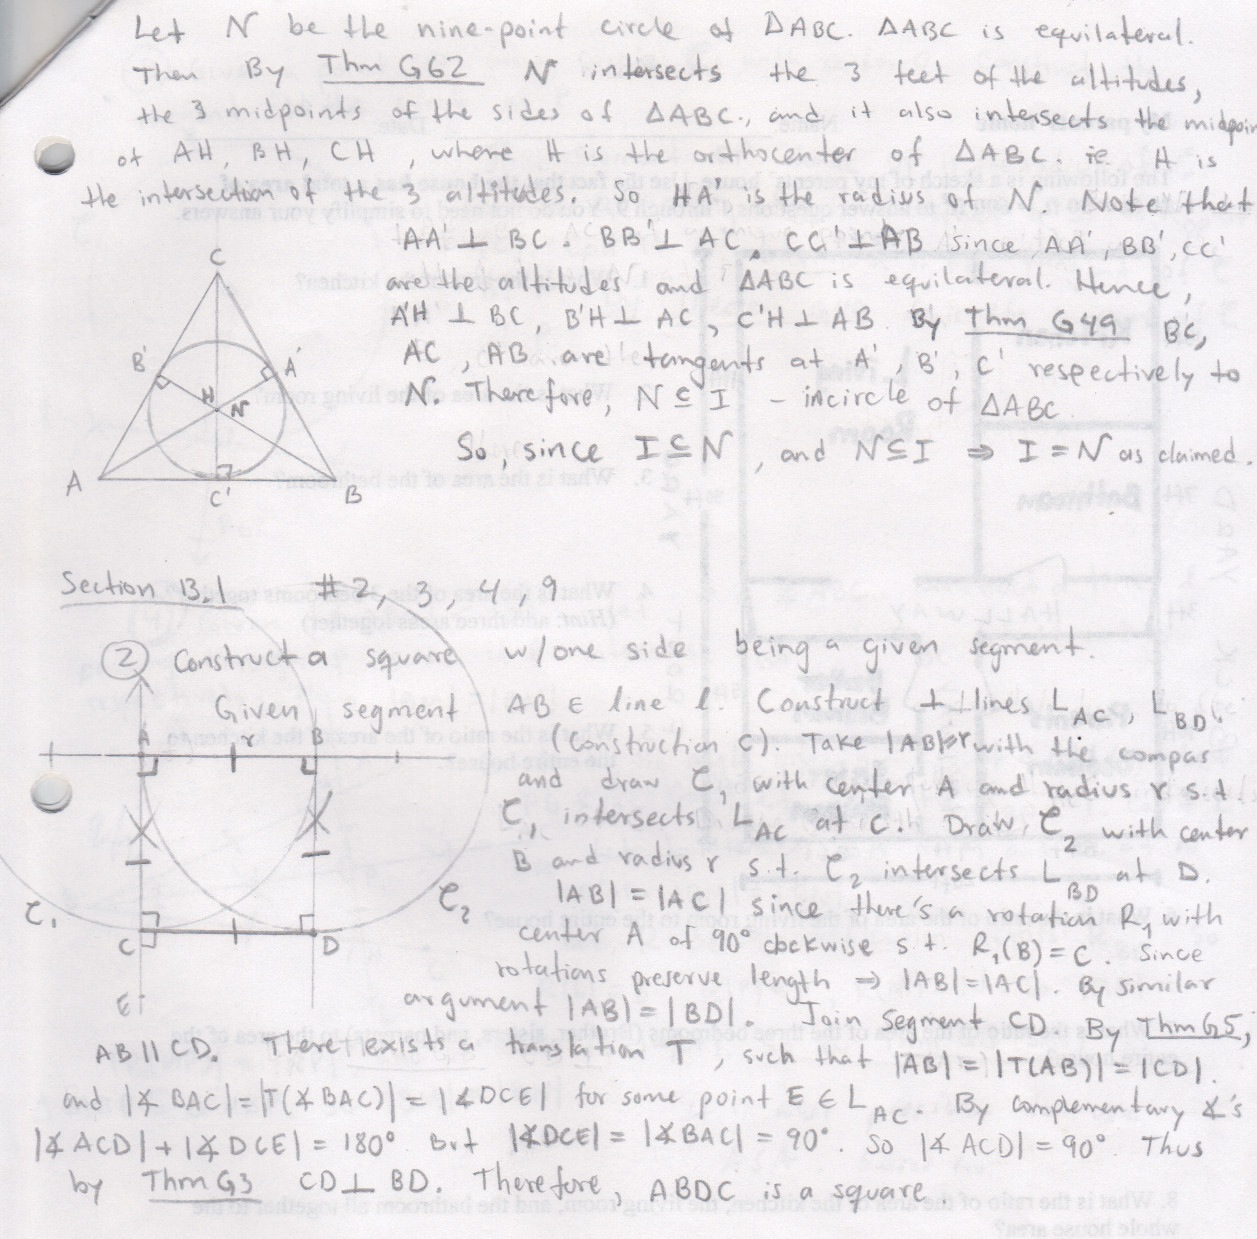 Let N be the nine-point circle of △ABC. △ABC is equilateral.
Then By Thm G62 N intersects the 3 feet of the altitudes,
the 3 midpoints of the sides of △ABC., and it also intersects the midpoin
of AH, BH, CH, where H is the orthocenter of △ABC. ie H is
the intersection of the 3 altitudes. So HA' is the radius of N. Note that
AA' ⊥ BC. BB' ⊥ AC, CC' ⊥ AB since AA', BB', CC'
are the altitudes and △ABC is equilateral. Hence,
A'H ⊥ BC, B'H ⊥ AC, C'H ⊥ AB. By Thm G49 BC,
AC, AB are tangents at A', B', C' respectively to
N. Therefore, N ⊆ I - incircle of △ABC
So, since I ⊆ N, and N ⊆ I ⇒ I = N as claimed.
C
B'
A'
H
N
A
C'
B
Section 13.1 #2, 3, 4, 9
② Construct a square w/one side being a given segment.
Given segment AB ∈ line l. Construct ⊥ lines L_AC, L_BD.
(Construction C). Take |AB|=r with the compas
and draw C₁ with center A and radius r s.t.
C₁ intersects L_AC at C. Draw C₂ with center
B and radius r s.t. C₂ intersects L_BD at D.
|AB| = |AC| since there's a rotation R₁ with
center A of 90° clockwise s.t. R₁(B) = C. Since
rotations preserve length ⇒ |AB|=|AC|. By similar
argument |AB|=|BD|. Join Segment CD. By Thm G5,
AB ∥ CD. There exists a translation T, such that |AB|=|T(AB)|=|CD|.
and |∡BAC|=|T(∡BAC)|=|∡DCE| for some point E ∈ L_AC. By complementary ∡'s
|∡ACD|+|∡DCE|=180° but |∡DCE|=|∡BAC|=90°. So |∡ACD|=90°. Thus
by Thm G3 CD ⊥ BD. Therefore, ABDC is a square
A
r
B
C₁
C₂
C
D
E